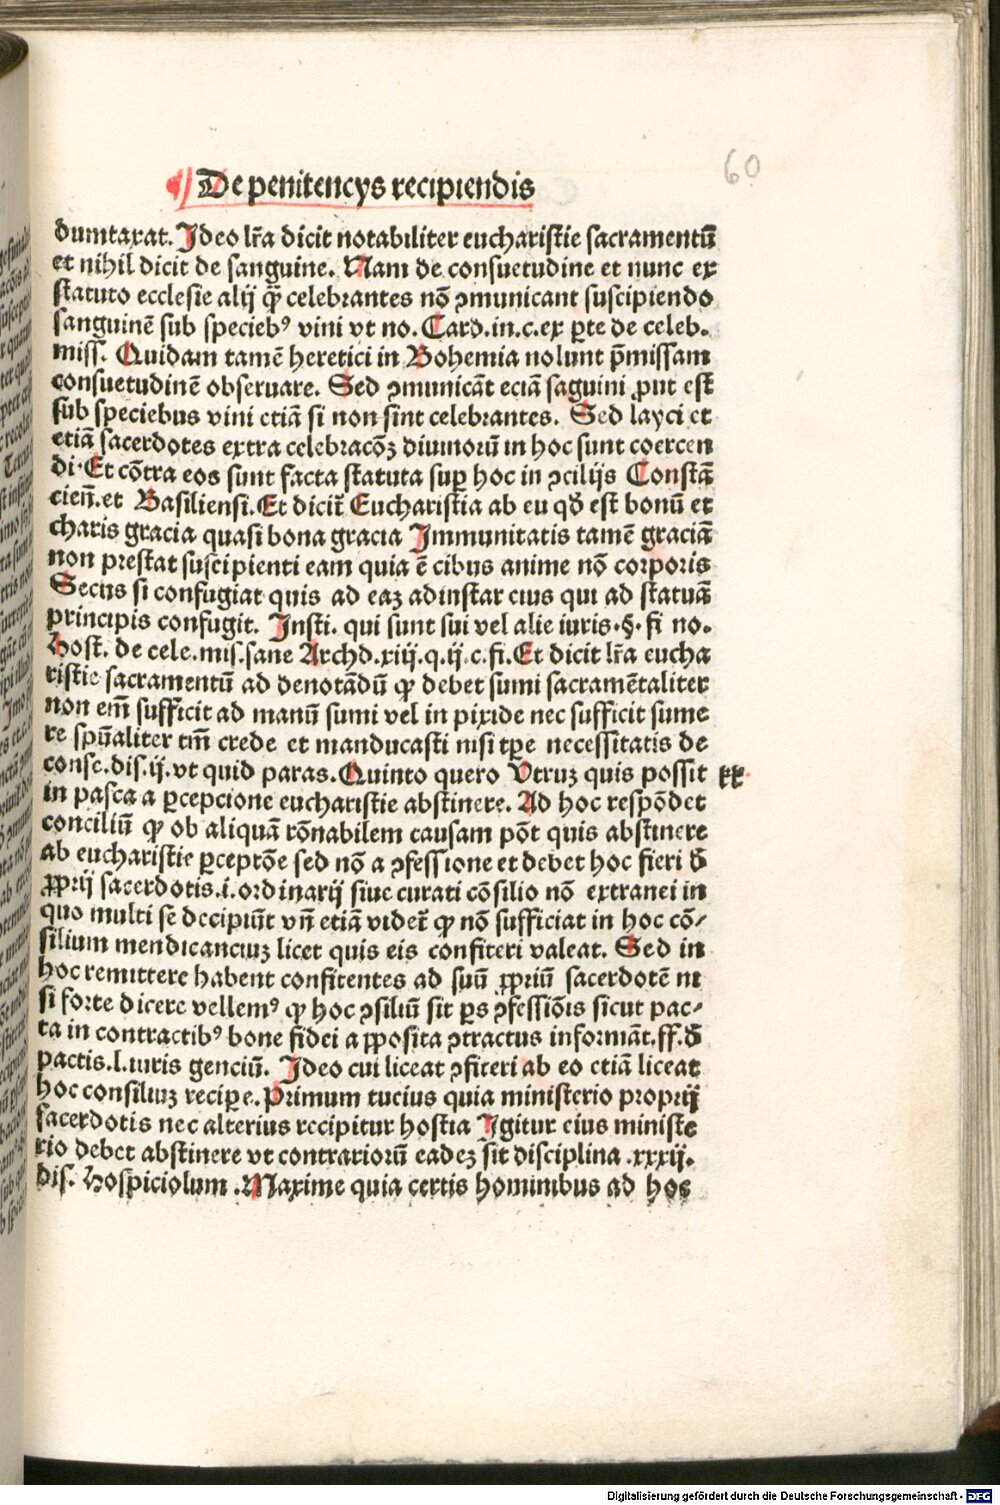 60
De penitencijs recipiendis
dumtaxat. Ideo lr̃a dicit notabiliter eucharistie sacramentū
et nihil dicit de sanguine. Nam de consuetudine et nunc ex
statuto ecclesie alij q̃ȝ celebrantes nō ꝯmunicant suscipiendo
sanguinē sub specieb⁹ vini vt no. Card.in.c.ex ꝑte de celeb.
miss. Quidam tamē heretici in Bohemia nolunt p̄missam
consuetudinē obseruare. Sed ꝯmunicāt eciā sāguini ꝓut est
sub speciebus vini etiā si non sint celebrantes. Sed layci et
etiā sacerdotes extra celebracōȝ diuinorū in hoc sunt coercen
di. Et cōtra eos sunt facta statuta suꝑ hoc in ꝯcilijs Constā
cien̄.et Basiliensi. Et dicit᷑ Eucharistia ab eu qđ est bonū et
charis gracia quasi bona gracia Immunitatis tamē graciā
non prestat suscipienti eam quia ē cibus anime nō corporis
Secus si confugiat quis ad eaȝ adinstar eius qui ad statuā
principis confugit. Insti. qui sunt sui vel alie iuris.§. fi no.
Host. de cele.mis.sane Archd.xiij.q.ij.c.fi. Et dicit lr̃a eucha
ristie sacramentū ad denotādū ꝙ debet sumi sacramētaliter
non em̄ sufficit ad manū sumi vel in pixide nec sufficit sume
re spūaliter tm̄ crede et manducasti nisi tꝑe necessitatis de
conse.dis.ij.vt quid paras. Quinto quero Vtruȝ quis possit
xx.
in pasca a ꝑcepcione eucharistie abstinere. Ad hoc respōdet
conciliū ꝙ ob aliquā rōnabilem causam pōt quis abstinere
ab eucharistie ꝑceptōe sed nō a ꝯfessione et debet hoc fieri đ
ꝓprij sacerdotis.i.ordinarij siue curati cōsilio nō extranei in
quo multi se decipiūt vn̄ etiā videt᷑ ꝙ nō sufficiat in hoc cō-
silium mendicanciuȝ licet quis eis confiteri valeat. Sed in
hoc remittere habent confitentes ad suū ꝓpriū sacerdotē ni
si forte dicere vellem⁹ ꝙ hoc ꝯsiliū sit ꝑs ꝯfessiōis sicut pac-
ta in contractib⁹ bone fidei a ꝓposita ꝯtractus informāt.ff.đ
pactis.l.iuris genciū. Ideo cui liceat ꝯfiteri ab eo etiā liceat
hoc consiliuȝ reciꝑe. Primum tucius quia ministerio proprij
sacerdotis nec alterius recipitur hostia Igitur eius ministe
rio debet abstinere vt contrariorū eadeȝ sit disciplina .xxxij.
dis. Hospiciolum. Maxime quia certis hominibus ad hoc
Digitalisierung gefördert durch die Deutsche Forschungsgemeinschaft - DFG